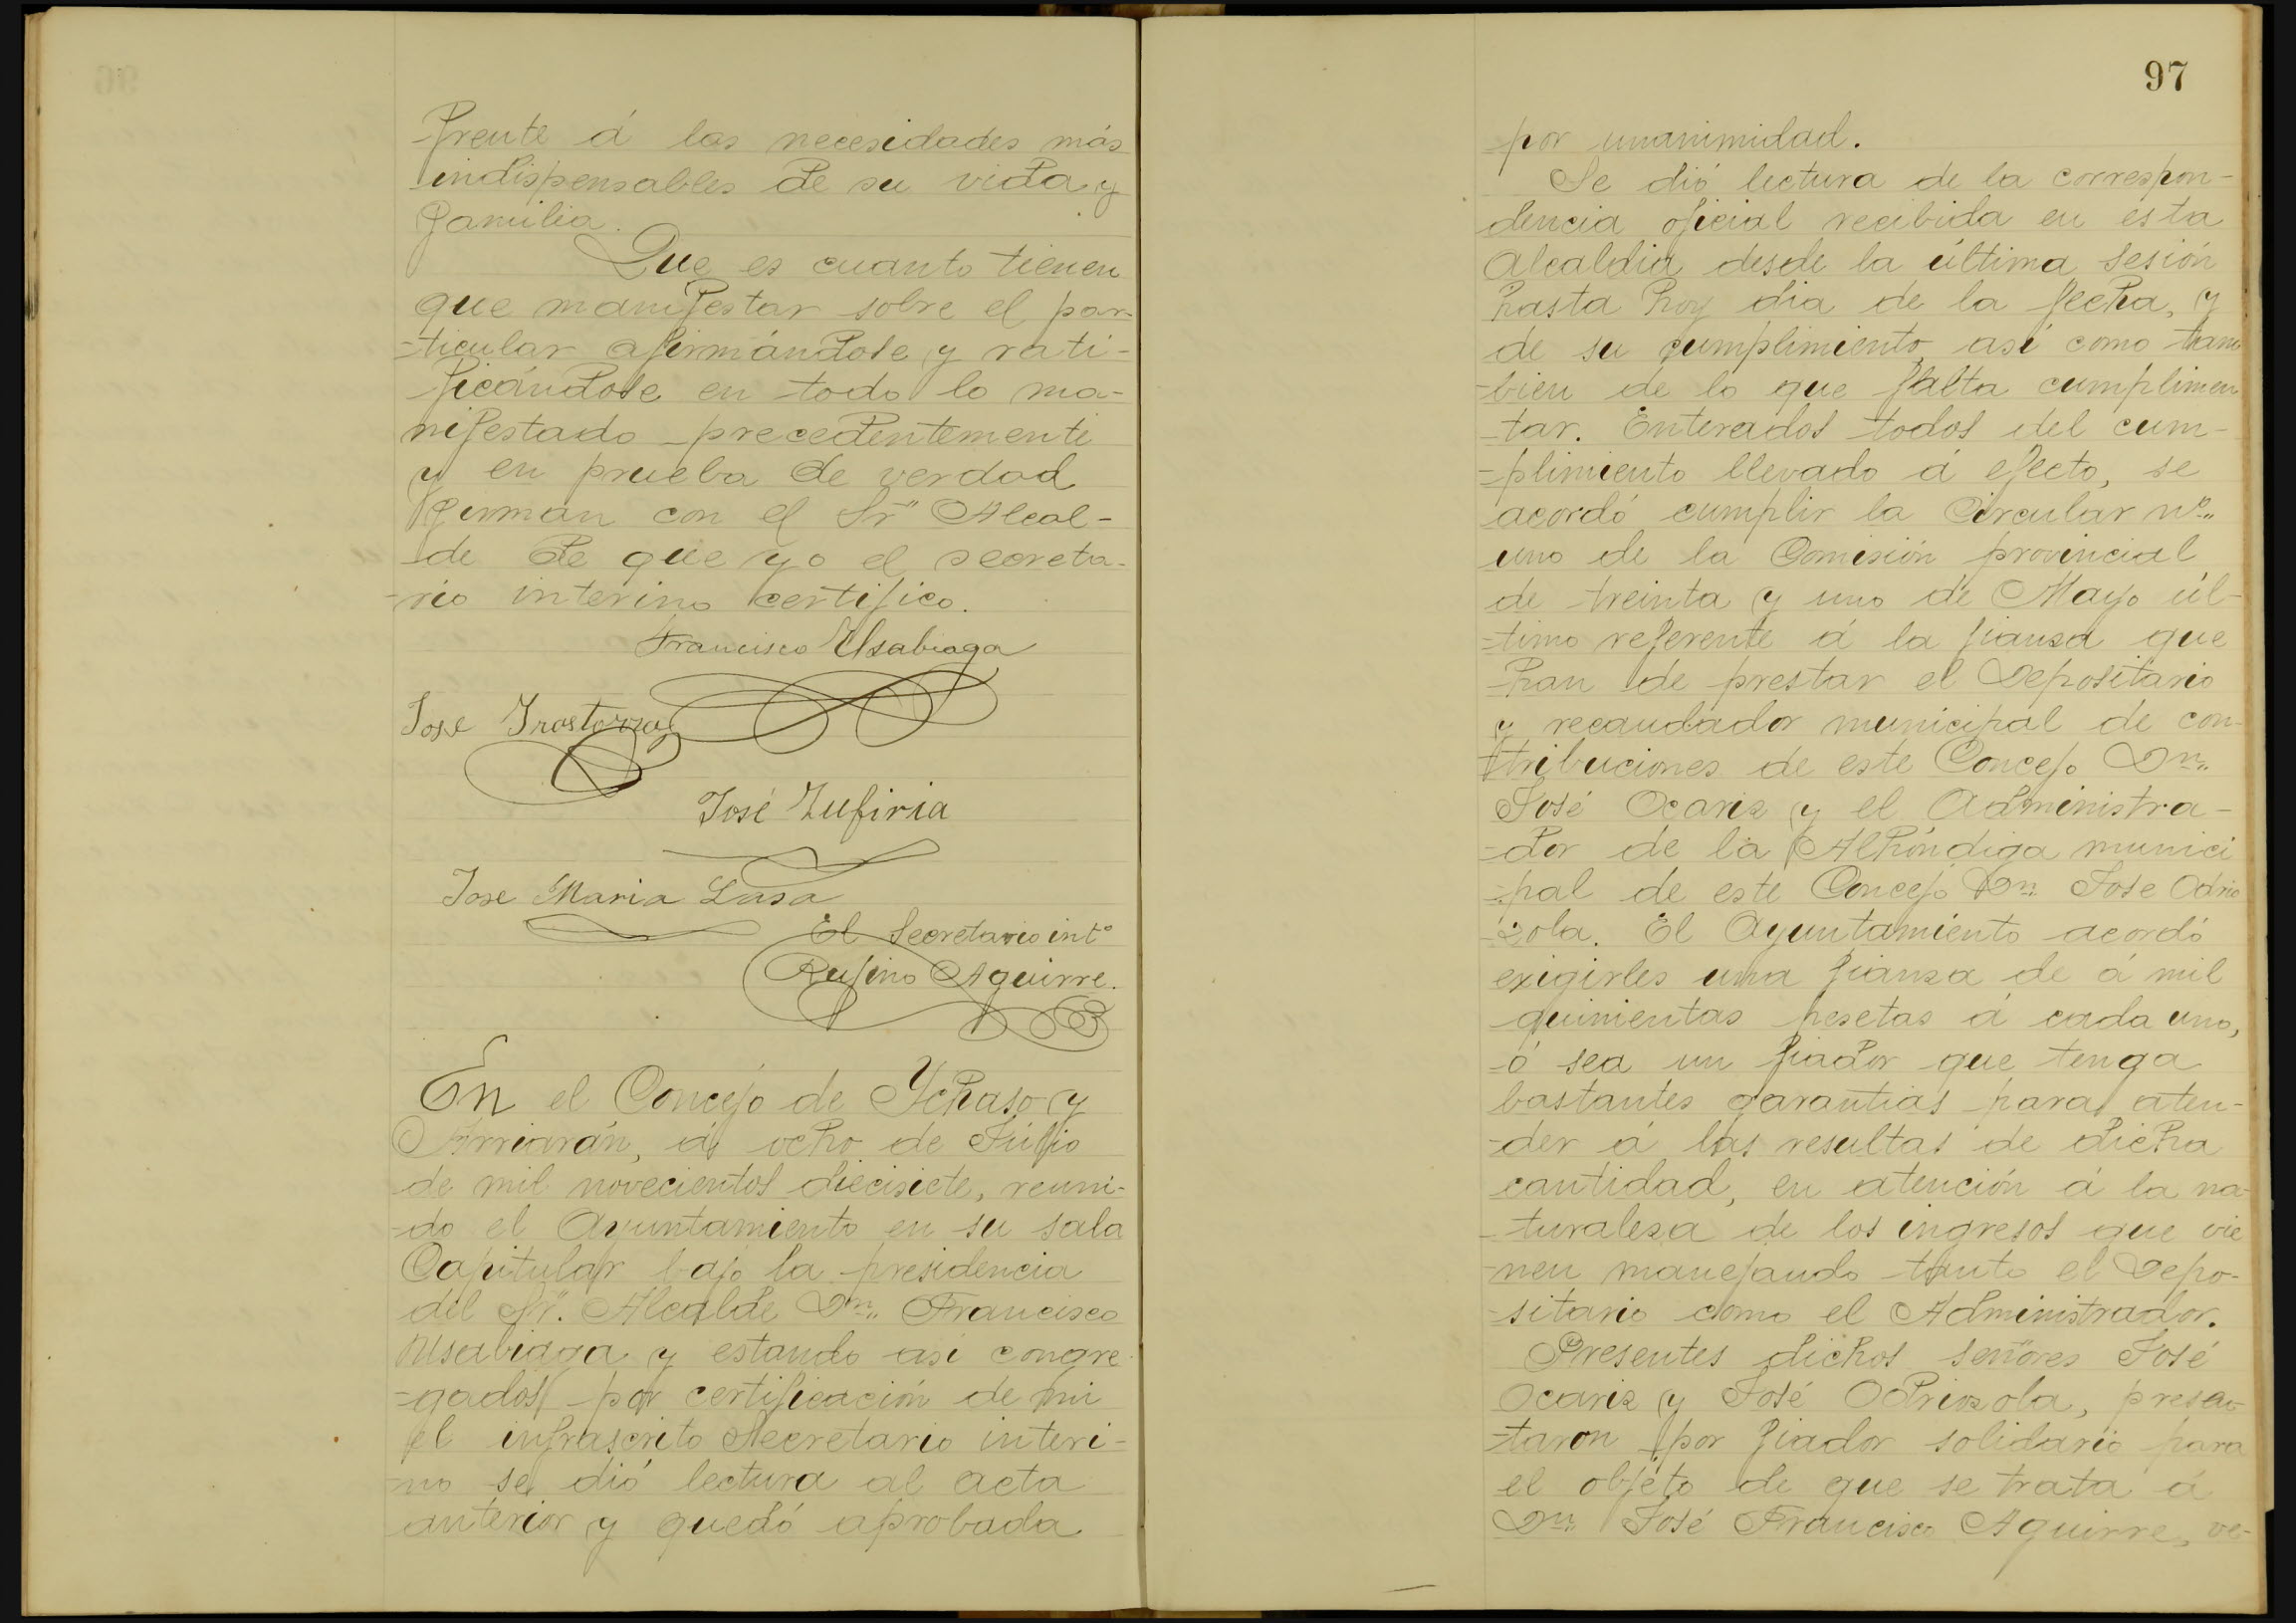 frente á las necesidades más
indispensables de su vida y
familia.
Que es cuanto tienen
que manifestar sobre el par-
-ticular afirmándose y rati-
ficándose en todo lo ma-
nifestado precedentemente
y en prueba de verdad
firman con el Sr. Alcal-
de de que yo el secreta-
-rio interino certifico.
Francisco Usabiaga
Jose Irastorza
José Zufiria
Jose Maria Lasa
El Secretario int°
Rufino Aguirre.
En el Concejo de Ychaso y
Arriarán, á ocho de Júlio
de mil novecientos diecisiete, reuni-
-do el Ayuntamiento en su sala
Capitular bajo la presidencia
del Sr. Alcalde Dn. Francisco
Usabiaga y estando asi congre-
-gados por certificación de mi
el infrascrito Secretario interi-
-no se dió lectura al acta
anterior y quedó aprobada
97
por unanimidad.
Se dió lectura de la correspon-
dencia oficial recibida en esta
Alcaldia desde la última sesión
hasta hoy dia de la fecha, y
de su cumplimiento, asi como tam
-bien de lo que falta cumplimen
-tar. Enterados todos del cum-
-plimiento llevado á efecto, se
acordó cumplir la Circular nº
uno de la Comisión provincial
de treinta y uno de Mayo úl-
-timo referente á la fianza que
han de prestar el Depositario
y recaudador municipal de con-
tribuciones de este Concejo Dn.
José Ocariz y el Administra-
-dor de la Alhóndiga munici
-pal de este Concejo Dn. Jose Odrio
-zola. El Ayuntamiento acordó
exigirles una fianza de á mil
quinientas pesetas á cada uno,
ó sea un fiador que tenga
bastantes garantias para aten-
-der á las resultas de dicha
cantidad, en atención á la na-
-turaleza de los ingresos que vie
-nen manejando tanto el Depo-
-sitario como el Administrador.
Presentes dichos señores José
Ocariz y José Odriozola, presen-
-taron por fiador solidario para
el objeto de que se trata á
Dn. José Francisco Aguirre, ve-